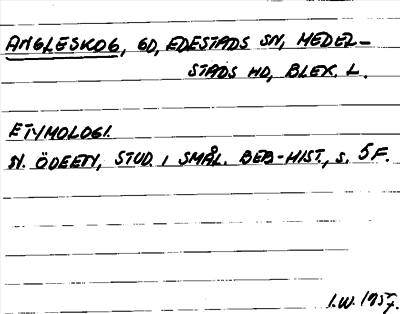 ANGLESKOG, GD, EDESTADS SN, MEDEL-
STADS HD, BLEK. L.
ETYMOLOGI.
N. ÖDEEN, STUD. I SMÅL. BEB-HIST., S. 5F.
I.W. 1957.